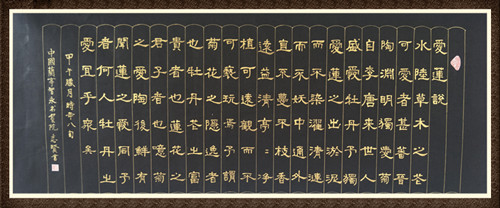 愛蓮說
水陸草木之花
可愛者甚蕃晉
陶淵明獨愛菊
自李唐來世人
盛愛牡丹予獨
愛蓮之出淤泥
而不染濯清漣
而不妖中通外
直不蔓不枝香
遠益清亭亭淨
植可遠觀而不
可褻玩焉予謂
菊花之隱逸者
也牡丹花之富
貴者也蓮花之
君子者也噫菊
之愛陶後鮮有
聞蓮之愛同予
者何人牡丹之
愛宜乎眾矣
甲午臘月時年八旬
中國蘭亭智永書畫院